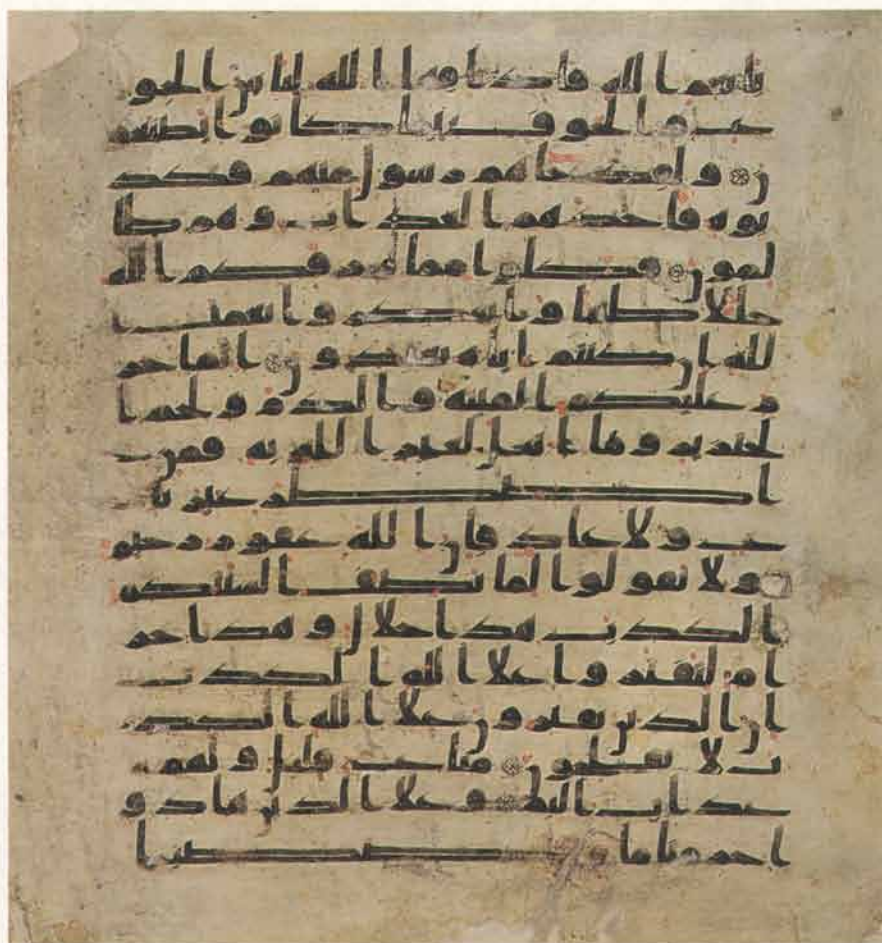 بانعم الله فاذاقها الله لباس الجو
ع والخوف بما كانوا يصنعو
ن ولقد جاهم رسول منهم فكذ
بوه فاخذهم العذاب وهم ظا
لمون فكلوا مما رزقكم الله
حللا طيبا واشكروا نعمت ا
لله ان كنتم اياه تعبدون انما حر
م عليكم الميتة والدم ولحم ا
لخنزير وما اهل لغير الله به فمن
اضطر غير با
غ ولا عاد فان الله غفور رحيم
ولا تقولوا لما تصف السنتكم
الكذب هذا حلال وهذا حر
ام لتفتروا علا الله الكذب
ان الذين يفترون علا الله الكذ
ب لا يفلحون متاع قليل ولهم
عذاب اليم وعلا الذين هادو
ا حرمنا ما قصصنا